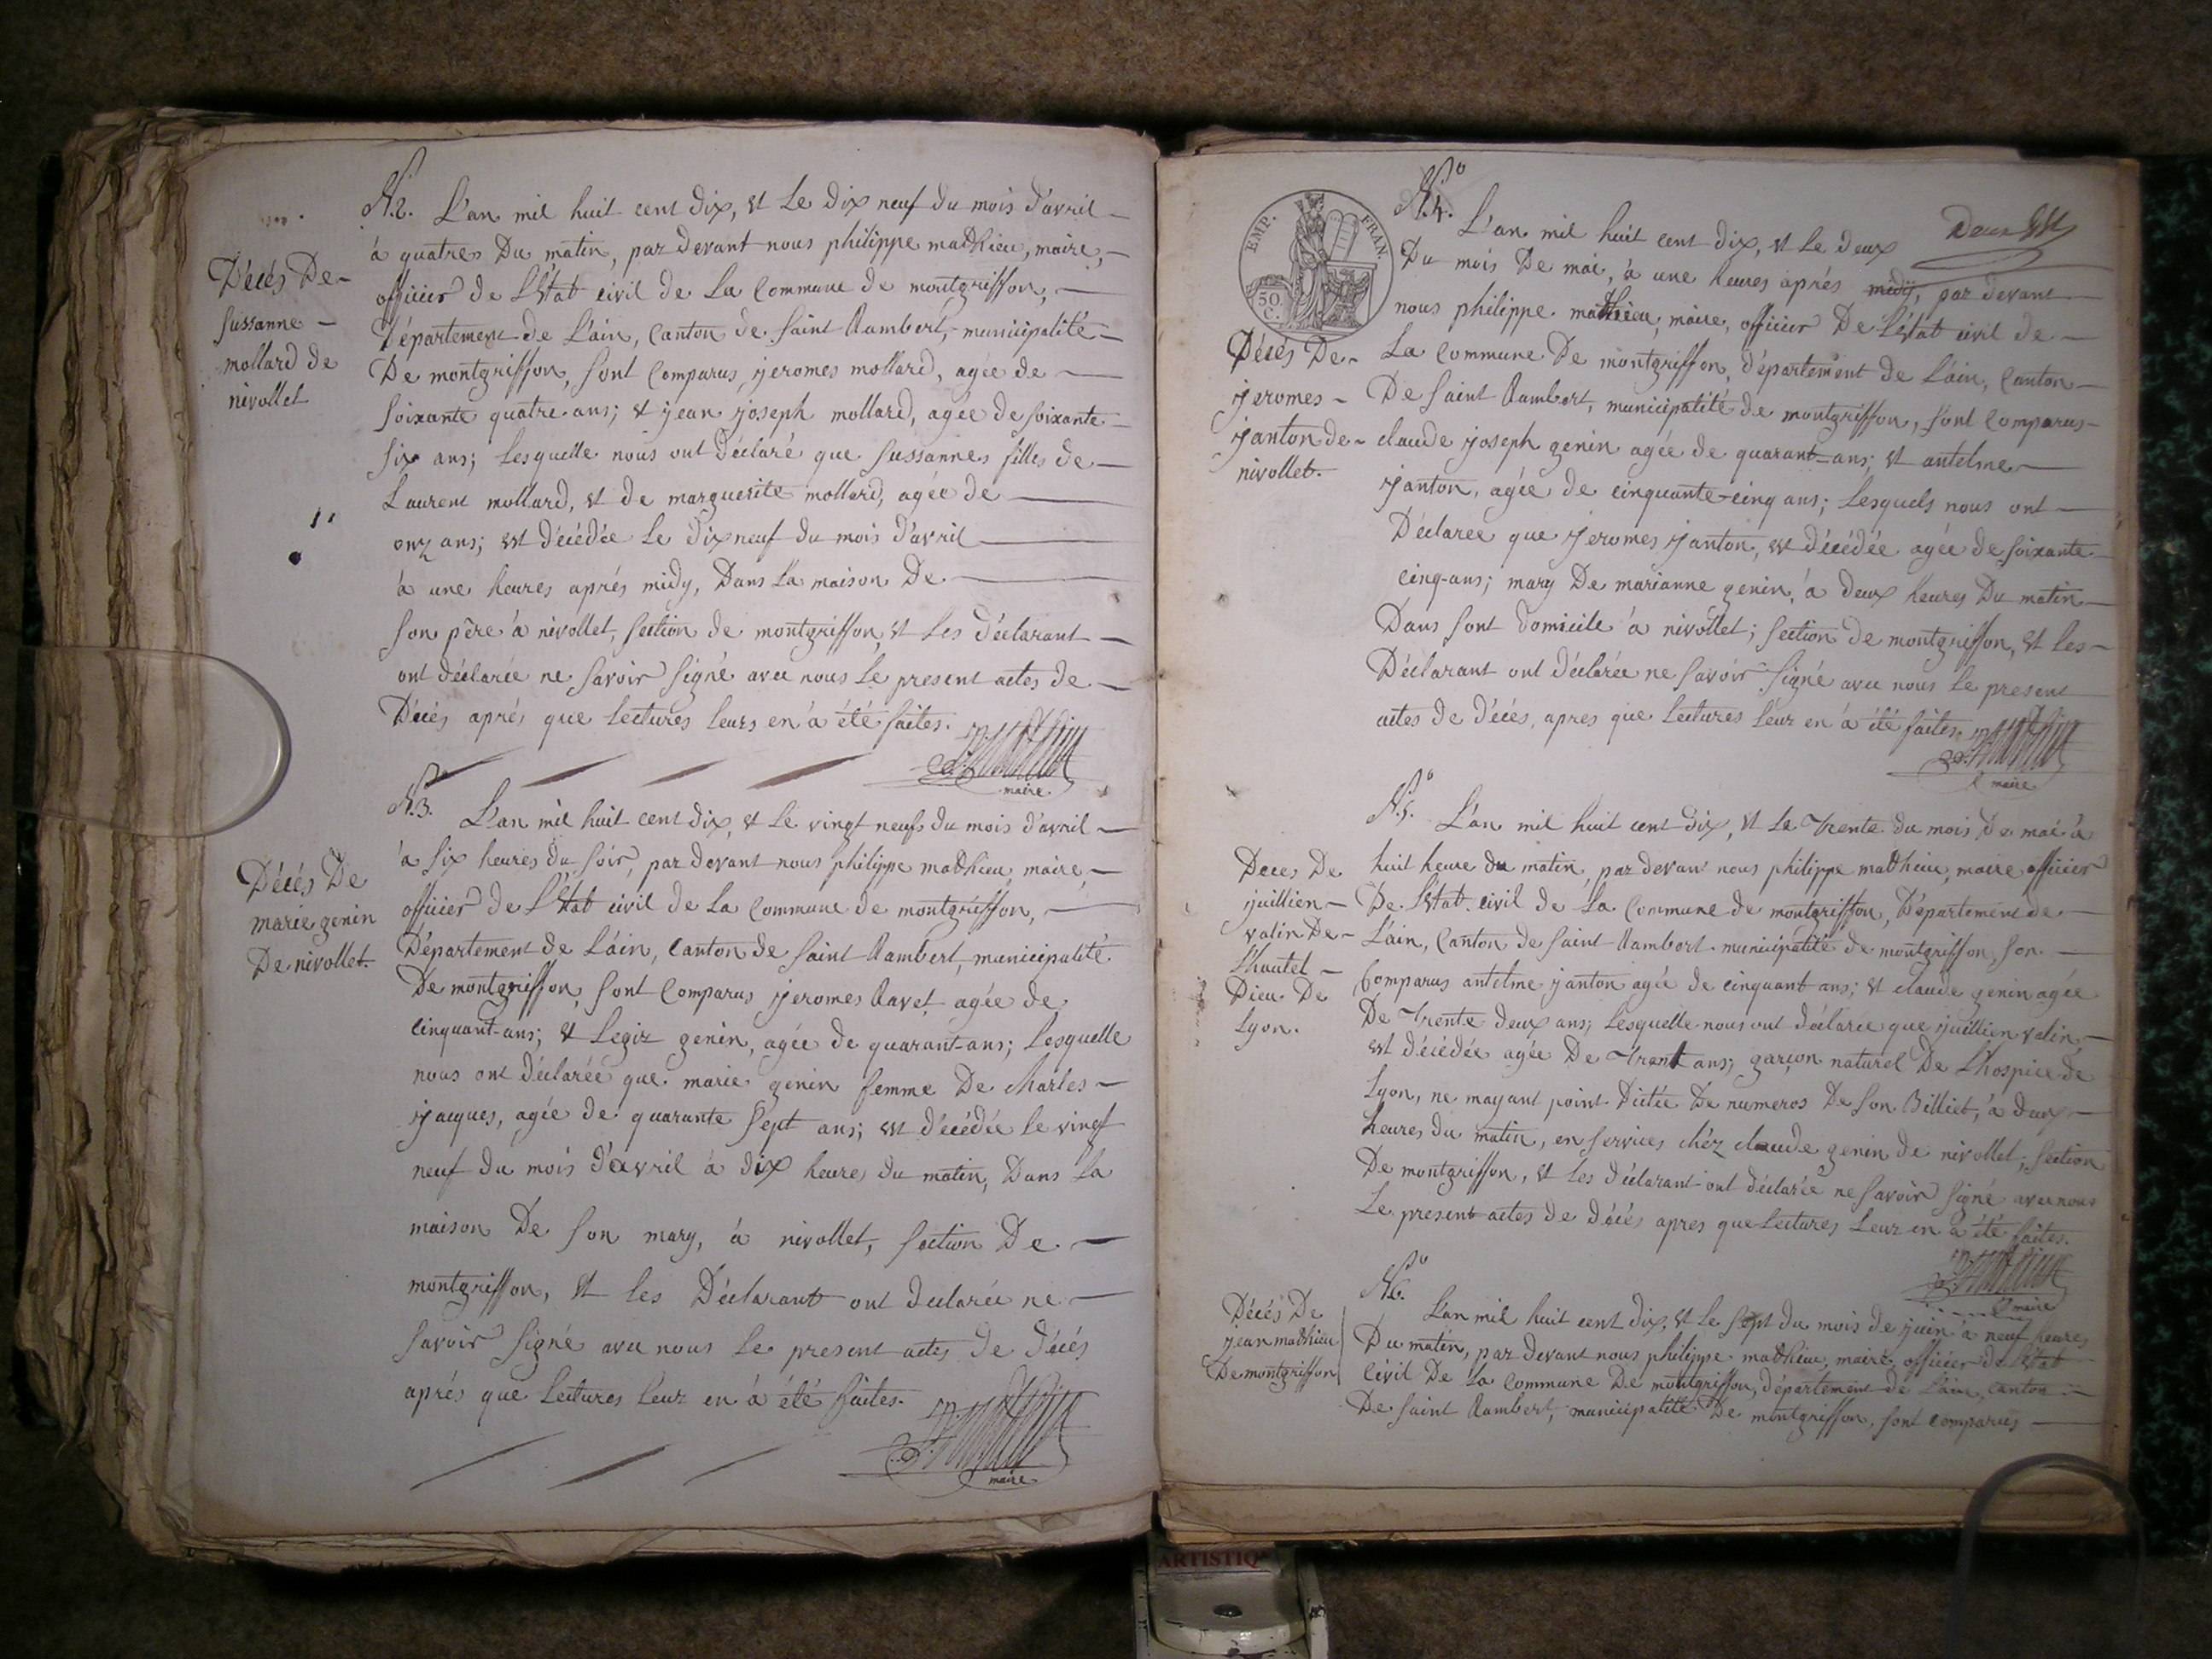 N.o 2. L'an mil huit cent dix, et Le dix neuf du mois d'avril
à quatres Du matin, par devant nous philippe mathieu, maire,
officier de L'Etat civil de La Commune de montgriffon,
Département de L'ain, Canton de saint Rambert, municipalité
De montgriffon, sont Comparus, jeromes mollard, agée de
soixante quatre ans; et jean joseph mollard, agée de soixante
six ans; Lesquelle nous out déclaré que sussannes filles de
Laurent mollard, et de marguerite mollard, agée de
onz ans; est décédée Le dix neuf du mois d'avril
à une heures aprés midy, Dans La maison De
son père à nivollet, section de montgriffon, et Les déclarant
out déclarée ne savoir signé avec nous Le present actes de
Décés aprés que Lectures Leurs en à été faites.
maire
Décés De
sussanne
mollard de
nivollet
N.o 3. L'an mil huit cent dix, et Le vingt neufs du mois d'avril
à six heures du soir, par devant nous philippe mathieu, maire,
officier de L'Etat civil de La Commune de montgriffon,
Département de L'ain, Canton de saint Rambert, municipalité
De montgriffon, sont Comparus jeromes Ravet agée de
cinquant-ans; et Legir genin, agée de quarant-ans; Lesquelle
nous ont déclarée que marie genin femme De charles
jacques, agée de quarante sept ans; est décédée Le vingt
neuf du mois d'avril à dix heures du matin, Dans La
maison De son mary, à nivollet, section De
montgriffon, et Les Déclarant out declarée ne
savoir signé avec nous Le present actes de décés
aprés que Lectures Leur en à été faites.
maire
Décés De
marie genin
De nivollet.
EMP. FRAN.
50
C.
N.o 4. L'an mil huit cent dix, et Le deux
Du mois De mai, à une heures aprés midy, par devant
nous philippe mathieu, maire, officier De L'état civil de
La Commune De montgriffon, département de L'ain, Canton
De saint Rambert, municipalité de montgriffon, sont Comparus
claude joseph genin agée de quarant-ans; et antelme
janton, agée de cinquante-cinq ans; Lesquels nous ont
Déclaree que jeromes janton, est décédée agée de soixante
cinq-ans; mary De marianne genin, à deux heures Du matin
Dans sont domicile à nivollet; section de montgriffon, et Les
Déclarant out déclarée ne savoir signé avec nous Le present
actes de décés, apres que Lectures Leur en à été faites.
maire
Décés De
jeromes
janton de
nivollet.
N.o 5. L'an mil huit cent dix, et Le trente du mois De mai à
huit heure du matin, par devan nous philippe mathieu, maire officier
De L'Etat civil de La Commune de montgriffon, Département de
L'ain, Canton de saint Rambert municipalité de montgriffon, son
Comparus antelme janton agée de cinquant ans; et claude genin agée
De trente deux ans; Lesquelle nous out déclarée que juillien valin
est décédée agée De trant ans; garçon naturel De L'hospice de
Lyon, ne mayant point Dictée De numeros De son Billiet, à deux
heures du matin, en services chéz claude genin de nivollet, section
De montgriffon, et Les déclarant out déclarée ne savoir signé avec nous
Le present actes de décés apres que Lectures Leur en à été faites.
maire
Deces De
juillien
valin De
L'hautel
Dieu De
Lyon.
N.o 6. L'an mil huit cent dix, et Le sept du mois de juin à neuf heures
Du matin, par devant nous philippe mathieu, maire officier de L'état
Civil De La Commune De montgriffon, département de L'ain, canton
De saint Rambert, municipalité De montgriffon, sont comparus
Décés De
jean mathieu
De montgriffon
ARTISTIQ